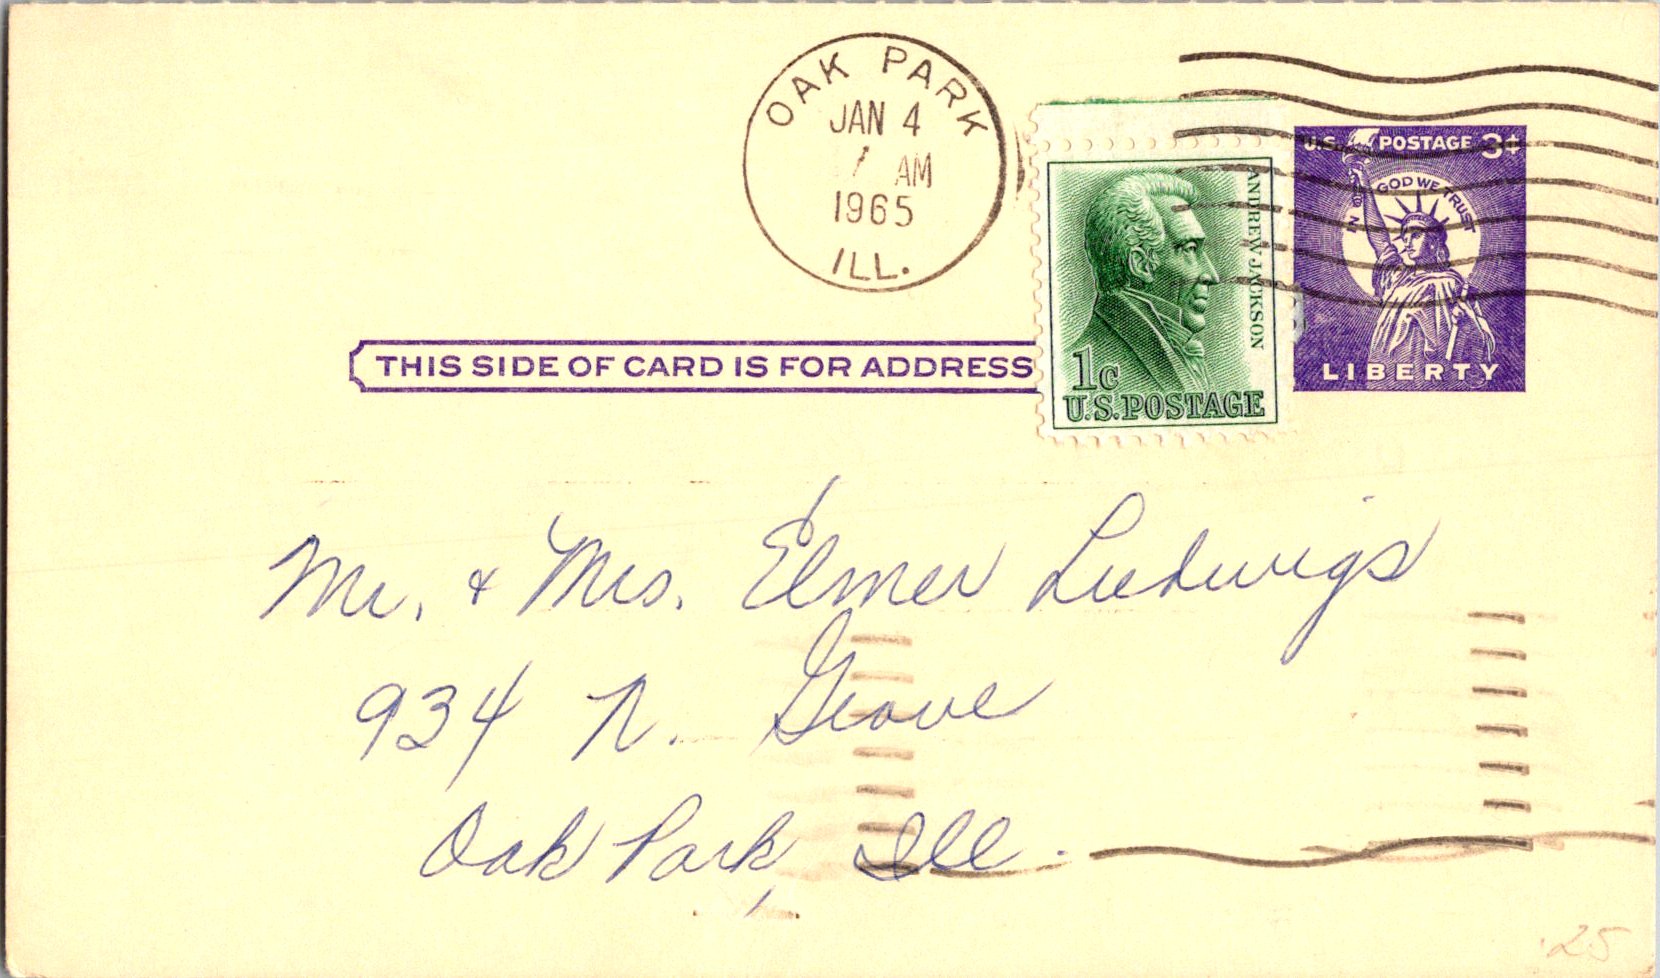 OAK PARK
JAN 4
AM
1965
ILL.
U.S. POSTAGE 3¢
IN GOD WE TRUST
LIBERTY
ANDREW JACKSON
1c
U.S. POSTAGE
THIS SIDE OF CARD IS FOR ADDRESS
Mr. & Mrs. Elmer Ludwigs
934 N. Grove
Oak Park, Ill.
.25